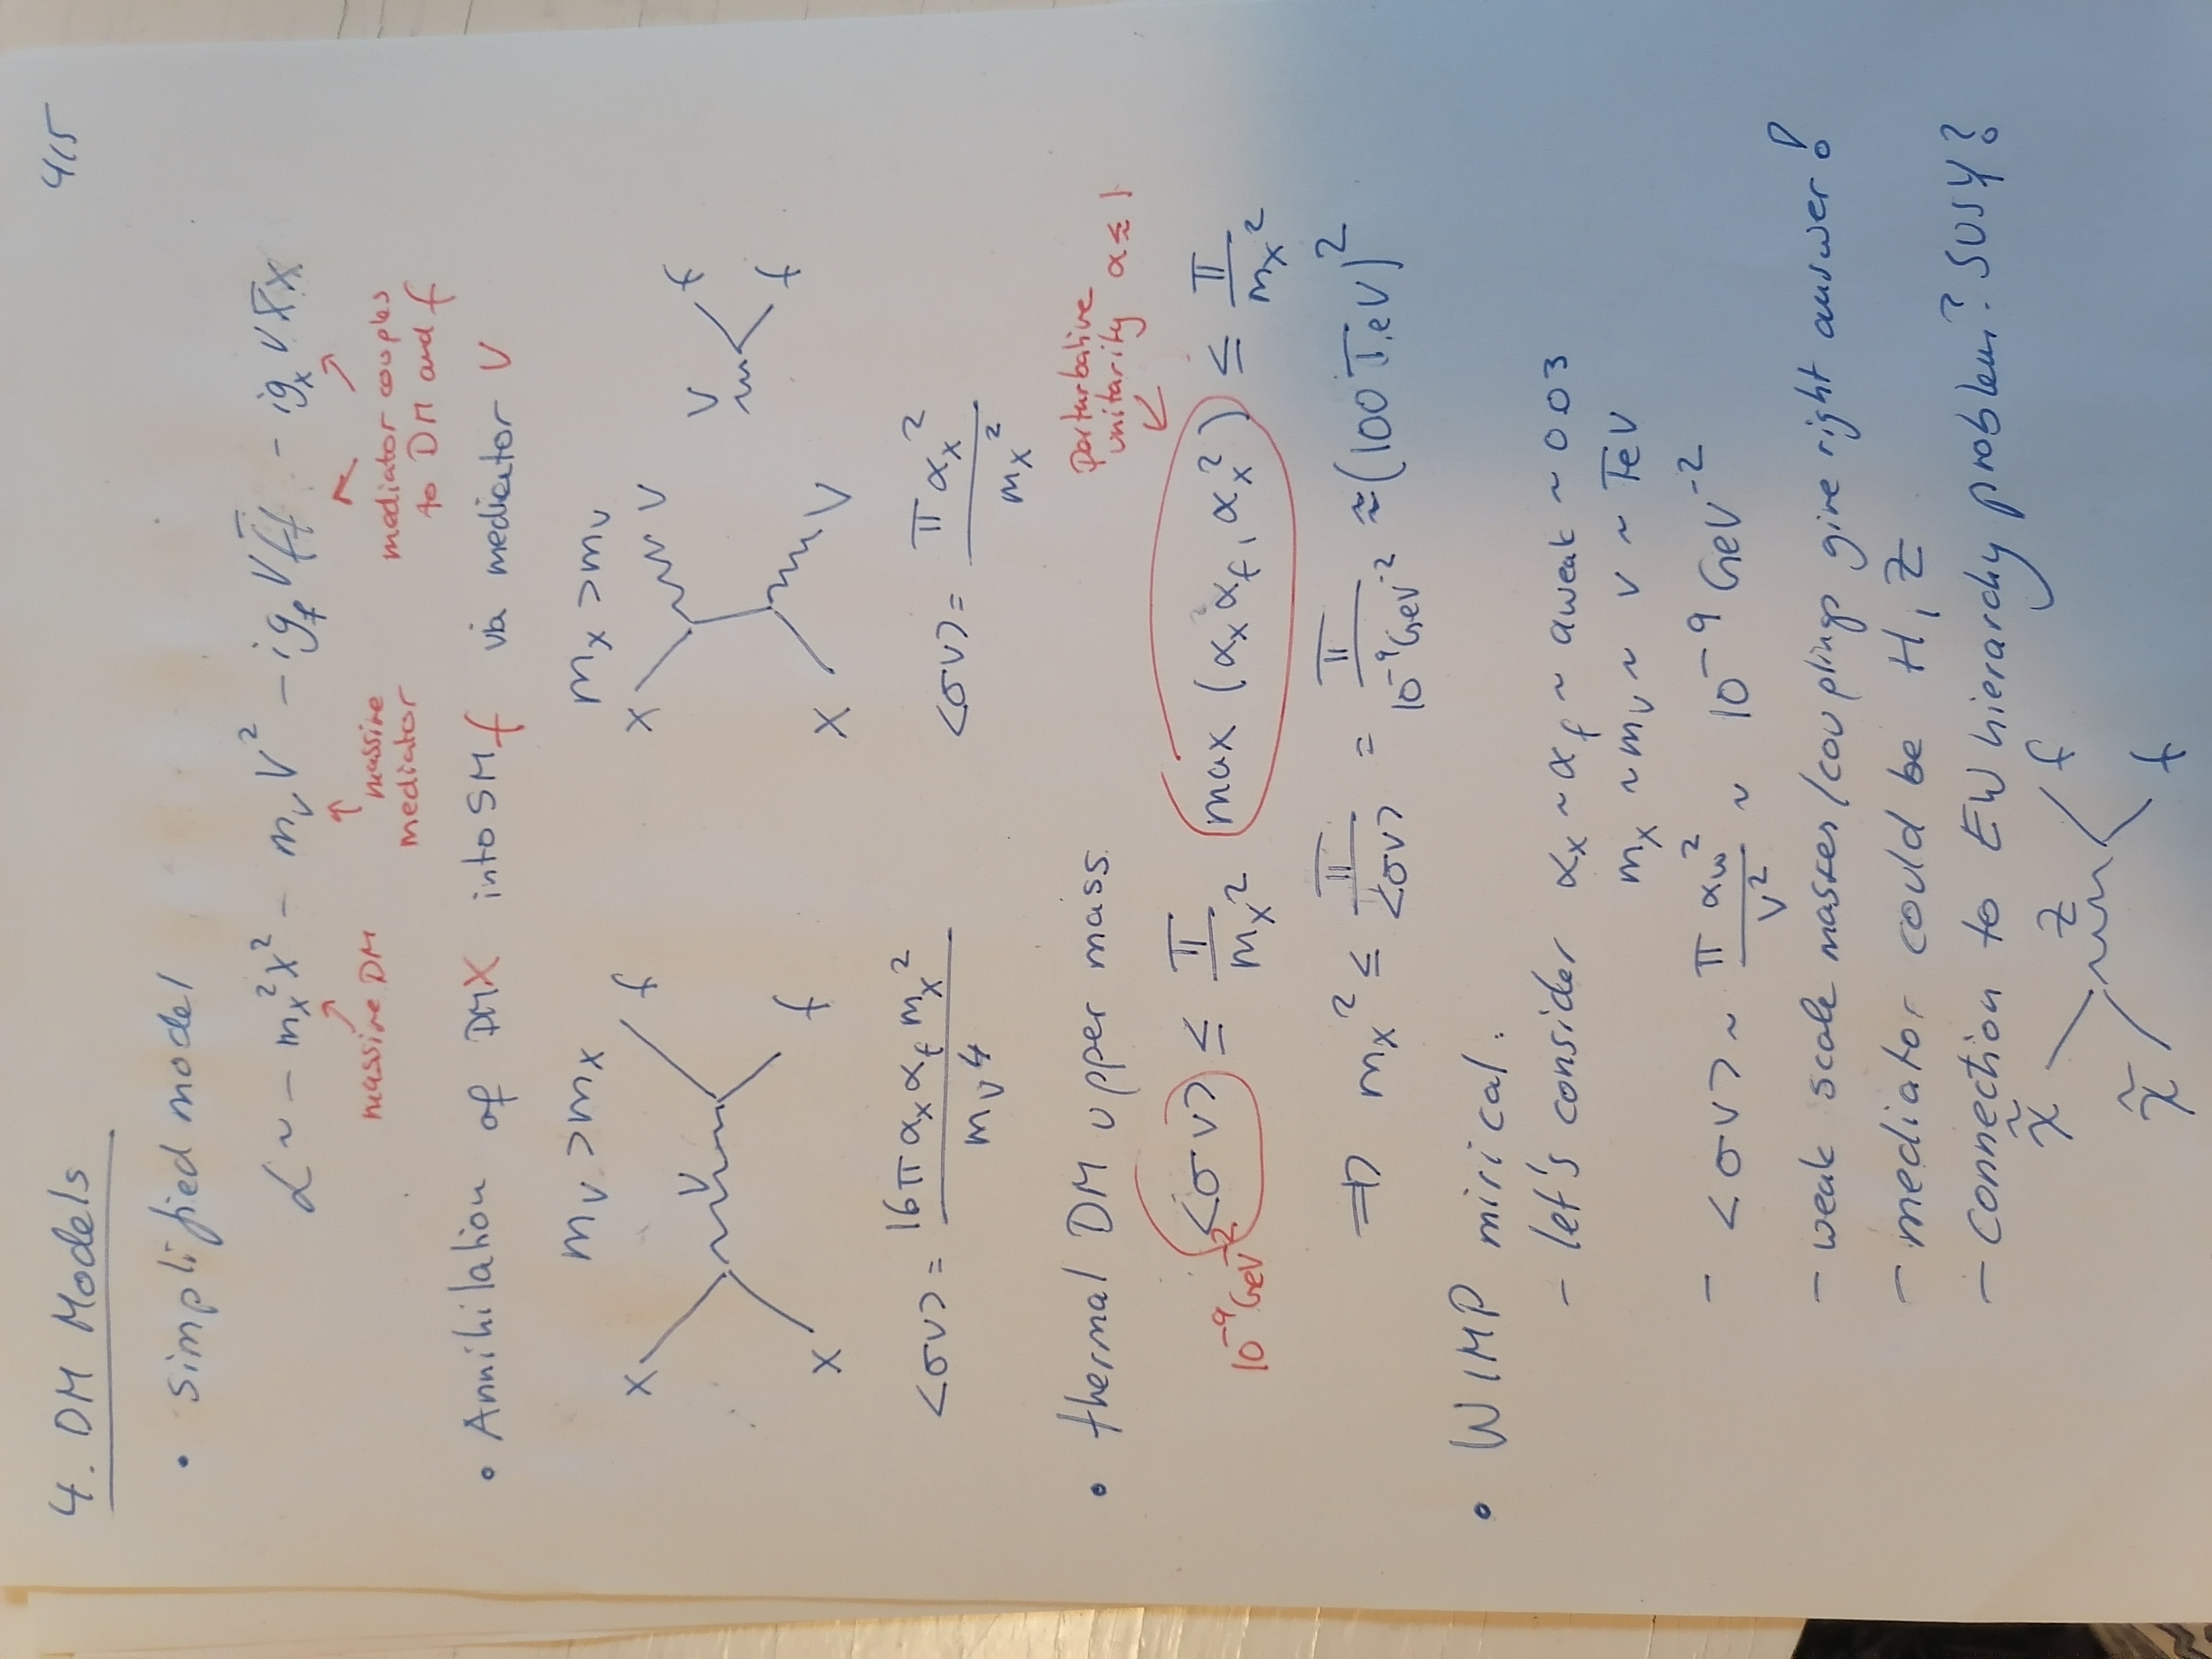 4/5
4. DM Models
• simplified model
L ~ - m_x² x² - m_v V² - i g_f V f̄f - i g_x V x̄x
massive DM
massive mediator
mediator couples to DM and f
• Annihilation of DM X into SM f via mediator V
m_v > m_x
m_x > m_v
x x V f f
x x V V V f f
<σv> = 16π α_x α_f m_x² / m_v⁴
<σv> = π α_x² / m_x²
• thermal DM upper mass
perturbative unitarity α ≲ 1
<σv> ≤ π/m_x² max (α_x α_f, α_x²) ≤ π/m_x²
10⁻⁹ GeV⁻²
⇒ m_x² ≤ π/<σv> = π/10⁻⁹ GeV⁻² ≈ (100 TeV)²
• WIMP mirical:
- let's consider α_x ~ α_f ~ αweak ~ 0.03
m_x ~ m_v ~ v ~ TeV
- <σv> ~ π α_w² / v² ~ 10⁻⁹ GeV⁻²
- weak scale masses/couplings give right answer!
- mediator could be H, Z
- Connection to EW hierarchy problem? SUSY?
χ̃ χ̃ Z f f